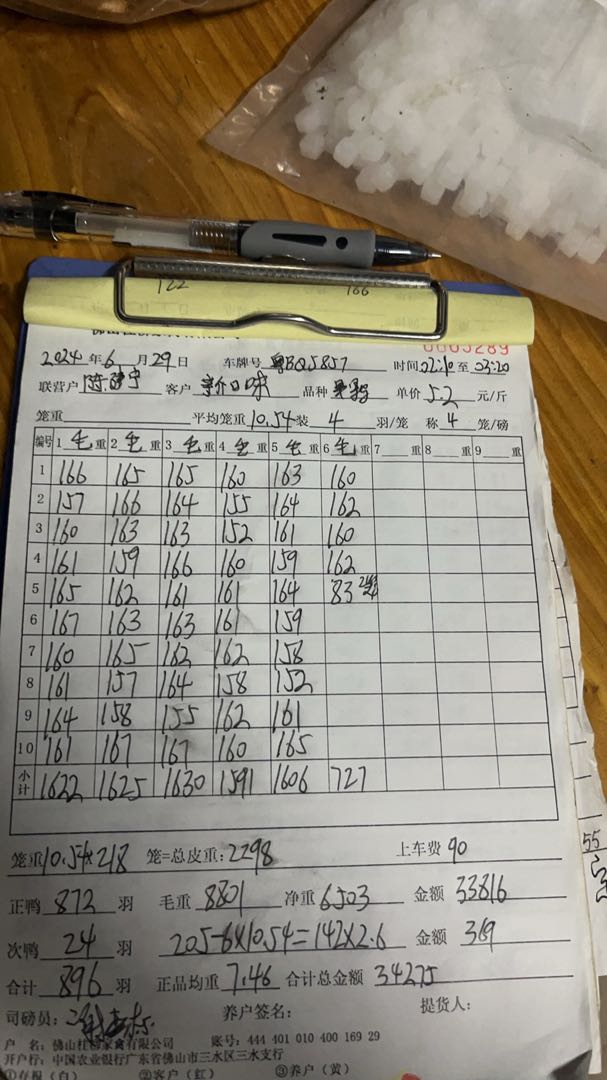 122 166
0003289
2024 年 6 月 29 日 车牌号 粤BQ5857 时间 02:10 至 03:20
联营户 客户 新口味 品种 单价 5.2 元/斤
笼重 平均笼重 10.54 装 4 羽/笼 称 4 笼/磅
编号 1 毛 重 2 毛 重 3 毛 重 4 毛 重 5 毛 重 6 毛 重 7 重 8 重 9 重
1 166 165 165 160 163 160
2 157 166 164 155 164 162
3 160 163 163 152 161 160
4 161 159 166 160 159 162
5 165 162 161 161 164 83
6 167 163 163 161 159
7 160 165 162 162 158
8 161 157 164 158 152
9 164 158 155 162 161
10 161 167 167 160 165
小计 1622 1625 1630 1591 1606 727
笼重 10.54×218 笼=总皮重: 2298 上车费 90
正鸭 872 羽 毛重 8801 净重 6503 金额 33816
次鸭 24 羽 205-6×10.54=142×2.6 金额 369
合计 896 羽 正品均重 7.46 合计总金额 34275
司磅员: 养户签名: 提货人:
户 名: 佛山 家禽有限公司 账号: 444 401 010 400 169 29
开户行: 中国农业银行广东省佛山市三水区三水支行
①存根（白） ②客户（红） ③养户（黄）
55